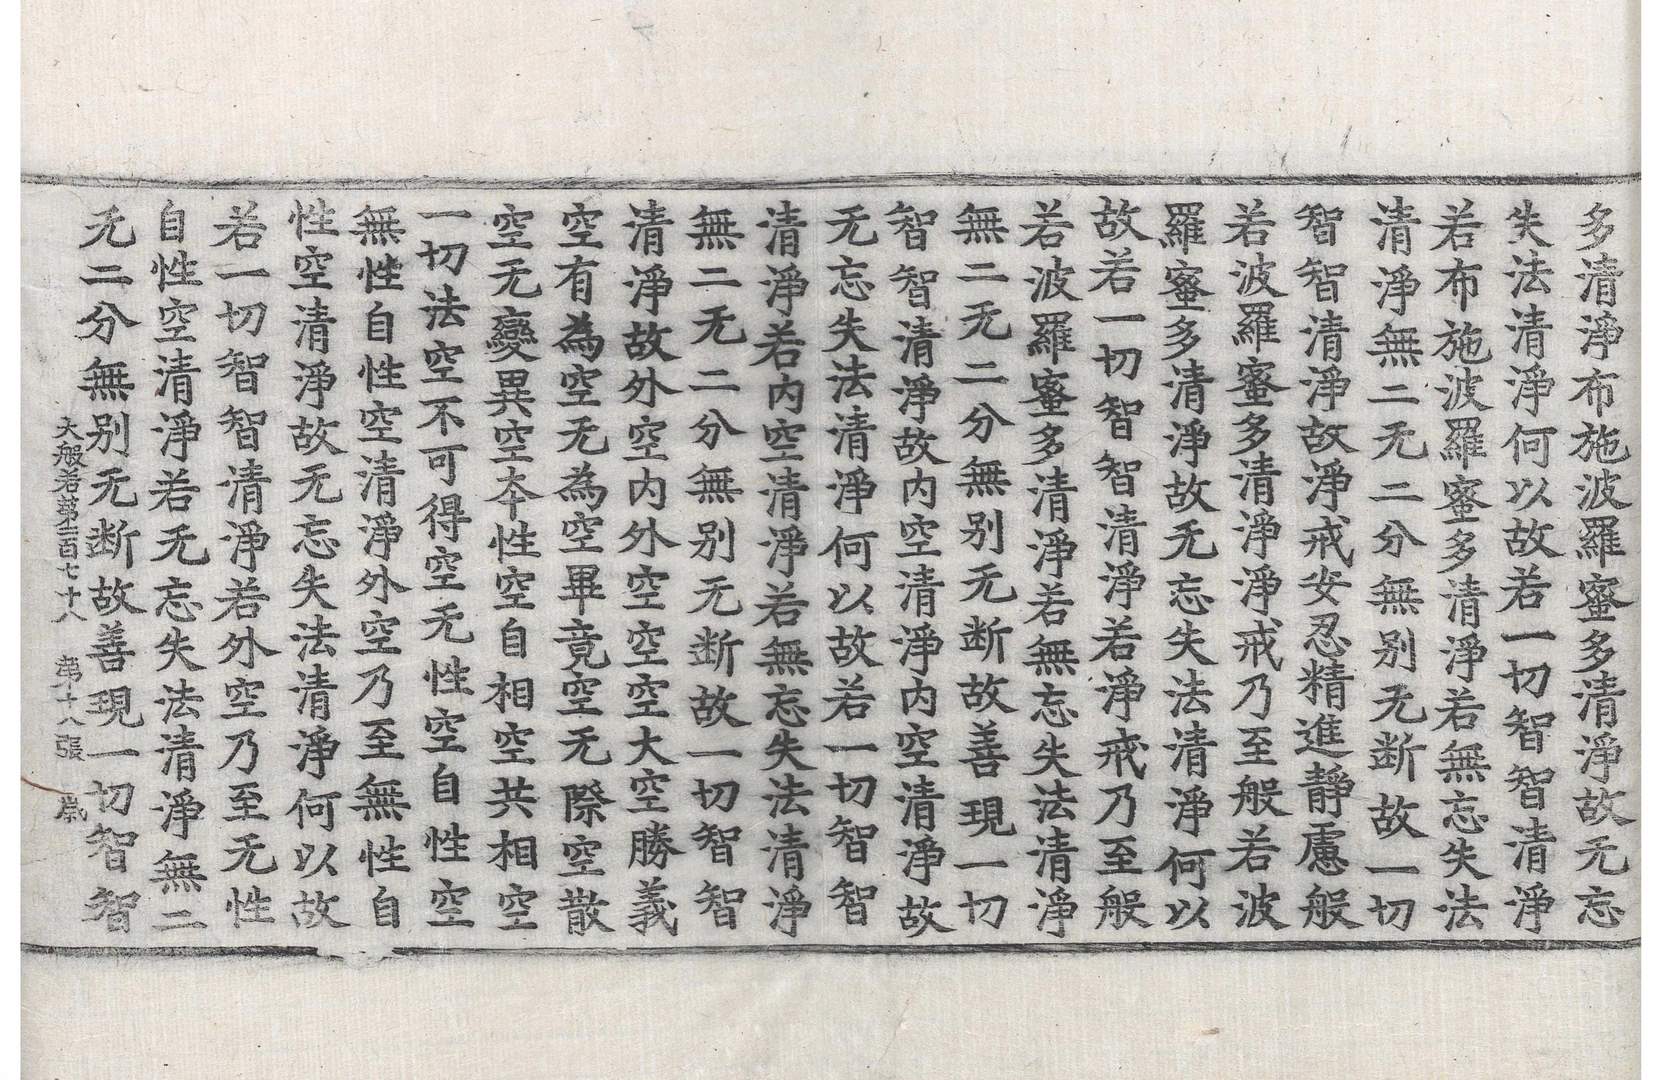 多清淨布施波羅蜜多清淨故无忘
失法清淨何以故若一切智智清淨
若布施波羅蜜多清淨若無忘失法
清淨無二无二分無别无断故一切
智智清淨故淨戒安忍精進靜慮般
若波羅蜜多清淨淨戒乃至般若波
羅蜜多清淨故无忘失法清淨何以
故若一切智智清淨若淨戒乃至般
若波羅蜜多清淨若無忘失法清淨
無二无二分無别无断故善現一切
智智清淨故内空清淨内空清淨故
无忘失法清淨何以故若一切智智
清淨若内空清淨若無忘失法清淨
無二无二分無别无断故一切智智
清淨故外空内外空空空大空勝義
空有為空无為空畢竟空无際空散
空无變異空本性空自相空共相空
一切法空不可得空无性空自性空
無性自性空清淨外空乃至無性自
性空清淨故无忘失法清淨何以故
若一切智智清淨若外空乃至无性
自性空清淨若无忘失法清淨無二
无二分無别无断故善現一切智智
大般若第二百七十八 第十八張 歲